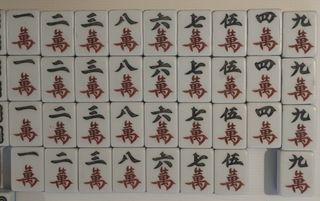 一萬 二萬 三萬 八萬 六萬 七萬 伍萬 四萬 九萬
一萬 二萬 三萬 八萬 六萬 七萬 伍萬 四萬 九萬
一萬 二萬 三萬 八萬 六萬 七萬 伍萬 四萬 九萬
一萬 二萬 三萬 八萬 六萬 七萬 伍萬 九萬